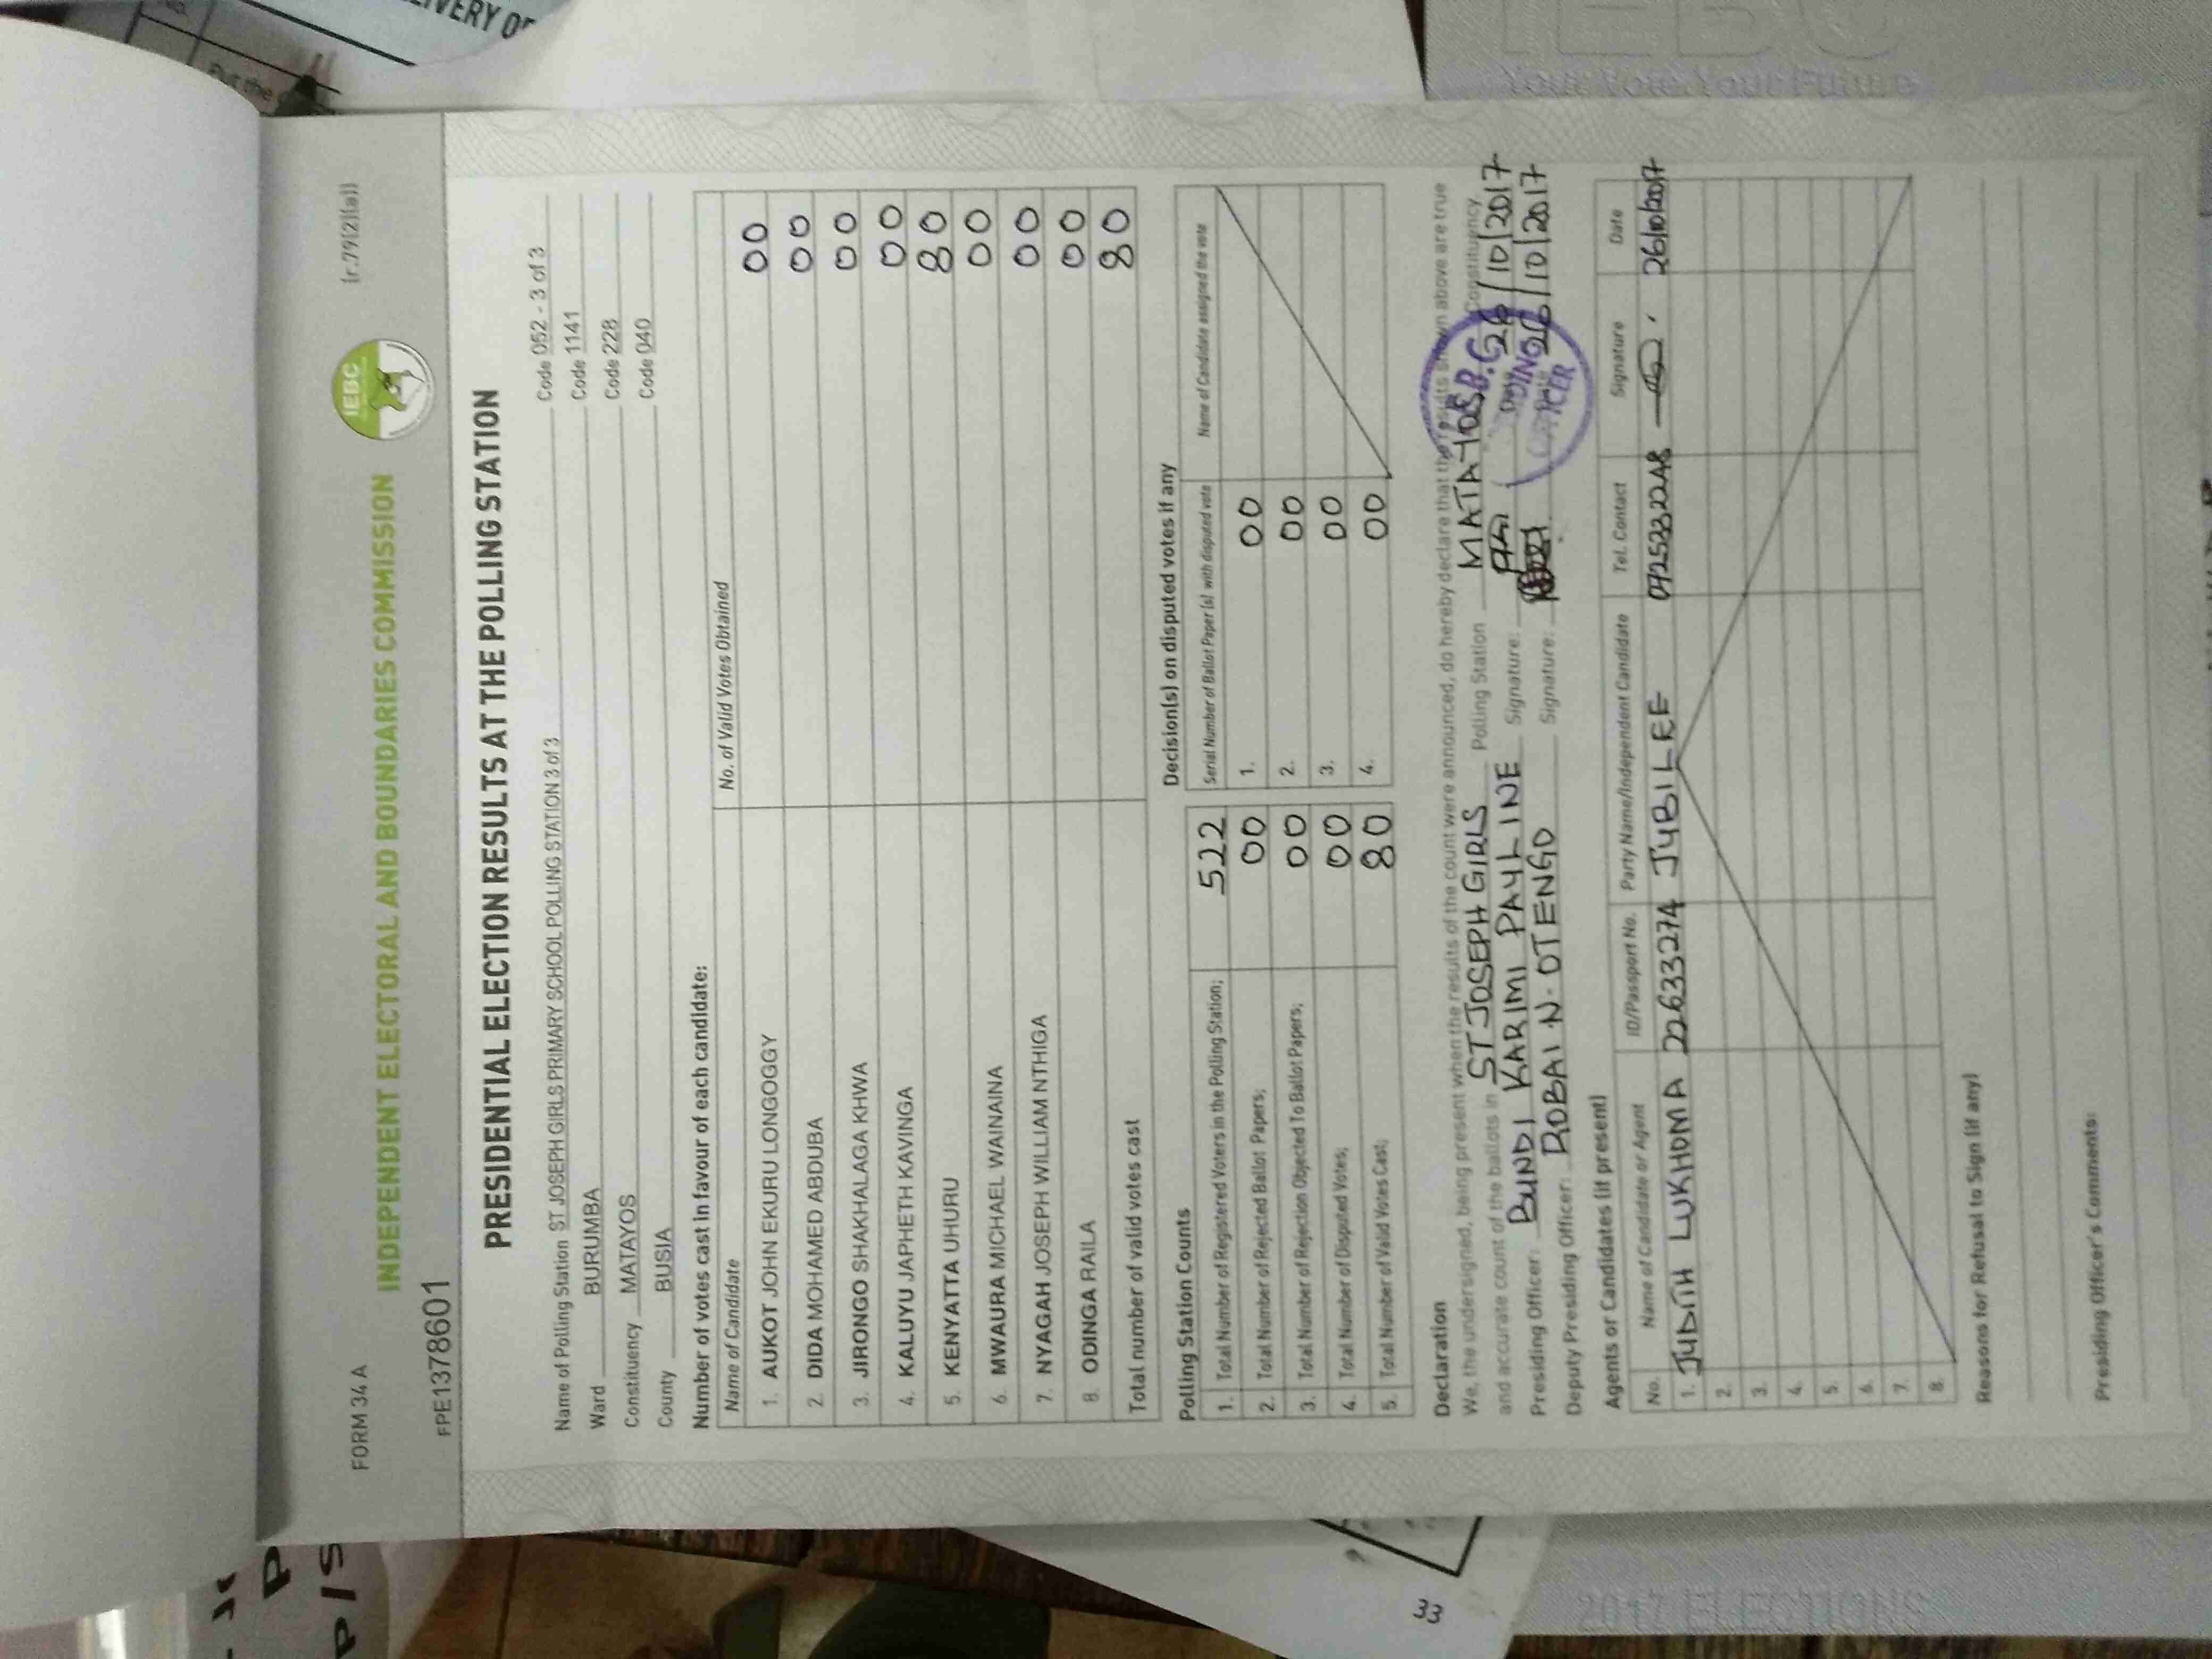 FORM 34 A
(r.79(2)(a))
INDEPENDENT ELECTORAL AND BOUNDARIES COMMISSION
IEBC
FPE1378601
PRESIDENTIAL ELECTION RESULTS AT THE POLLING STATION
Name of Polling Station ST JOSEPH GIRLS PRIMARY SCHOOL POLLING STATION 3 of 3 Code 052 - 3 of 3
Ward BURUMBA Code 1141
Constituency MATAYOS Code 228
County BUSIA Code 040
Number of votes cast in favour of each candidate:
Name of Candidate No. of Valid Votes Obtained
1. AUKOT JOHN EKURU LONGOGGY 00
2. DIDA MOHAMED ABDUBA 00
3. JIRONGO SHAKHALAGA KHWA 00
4. KALUYU JAPHETH KAVINGA 00
5. KENYATTA UHURU 80
6. MWAURA MICHAEL WAINAINA 00
7. NYAGAH JOSEPH WILLIAM NTHIGA 00
8. ODINGA RAILA 00
Total number of valid votes cast 80
Polling Station Counts
1. Total Number of Registered Voters in the Polling Station; 522
2. Total Number of Rejected Ballot Papers; 00
3. Total Number of Rejection Objected To Ballot Papers; 00
4. Total Number of Disputed Votes; 00
5. Total Number of Valid Votes Cast; 80
Decision(s) on disputed votes if any
Serial Number of Ballot Paper (s) with disputed vote Name of Candidate assigned the vote
1. 00
2. 00
3. 00
4. 00
Declaration
We, the undersigned, being present when the results of the count were announced, do hereby declare that the results shown above are true
and accurate count of the ballots in ST JOSEPH GIRLS Polling Station MATAYOS Constituency
Presiding Officer: BUNDI KARIMI PAULINE Signature: Date 26/10/2017
Deputy Presiding Officer: ROBAI N. OTENGO Signature: Date 26/10/2017
Agents or Candidates (if present)
No. Name of Candidate or Agent ID/Passport No. Party Name/Independent Candidate Tel. Contact Signature Date
1. JUDITH LUKHOMA 22633274 JUBILEE 0725332248 26/10/2017
2.
3.
4.
5.
6.
7.
8.
Reasons for Refusal to Sign (if any)
Presiding Officer's Comments:
IEBC
Your Vote Your Future
2017 ELECTIONS
33